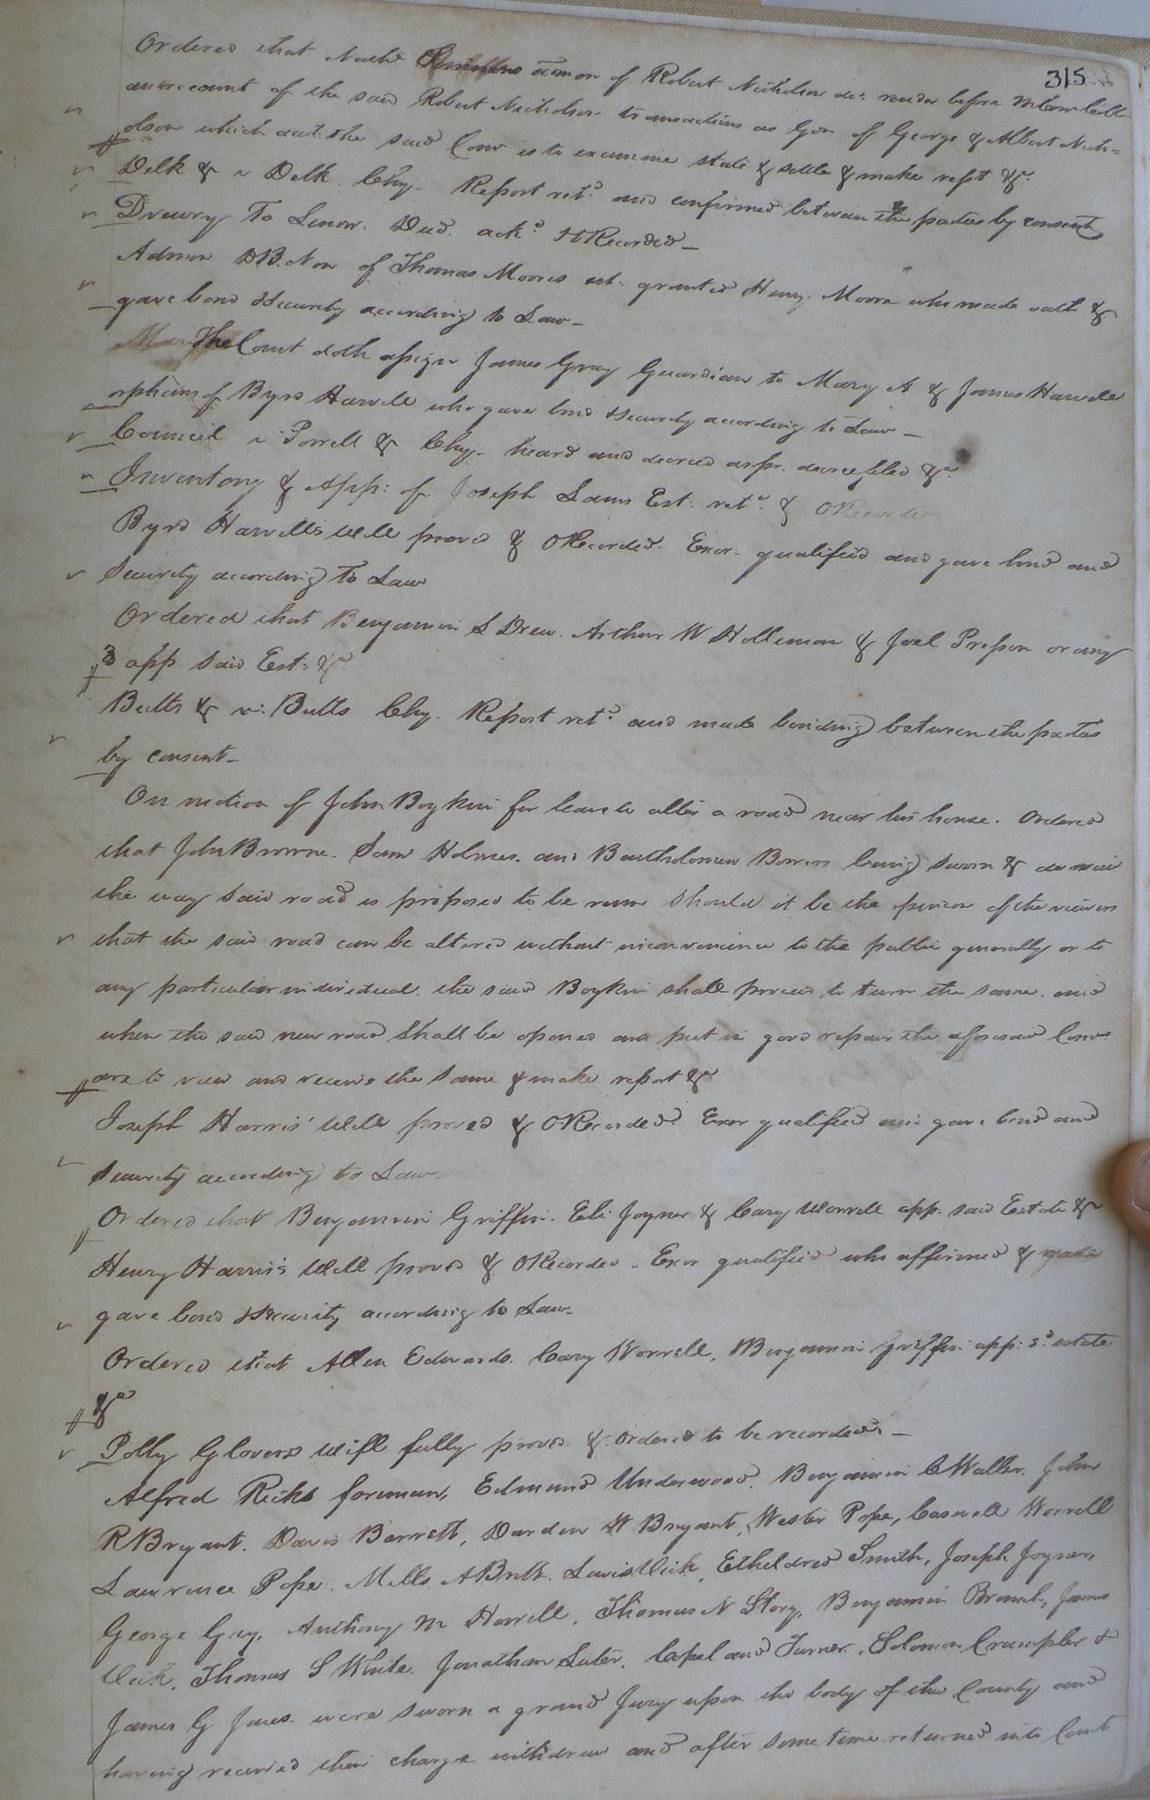 315
Ordered that Nathl admor of Robert Nicholson decd render before M Com
an account of the said Robert Nicholson transactions as Gdn of George & Albert Nich=
olson which acct. the said Comr is to examine state & settle & make rept &c.
Delk & v Delk. Chy. Report retd. and confirmed between the parties by consent
Drewry To Simon. Deed. ackd. & ORecorded
Admon DB. Non of Thomas Moores est. granted Henry. Moore who made oath &
gave bond & security according to Law
The Court doth assign James Gray Guardian to Mary A & James Harvell
orphans of Byrd Harvell who gave bond & security according to Law
Council v Porrell & Chy. heard and decreed as pr. decree filed &c
Inventory & App: of Joseph Lawns Est: retd. & ORecorded
Byrd Harvell's Will proved & ORecorded. Exor. qualified and gave bond and
Security according To Law
Ordered that Benjamin S Drew. Arthur W Holleman & Joel Presson or any
3 app said Est: &c
Butts & v: Butts Chy. Report retd. and made binding between the parties
by consent
On motion of John Boykin for leave to alter a road near his house. Ordered
that John Browne. Saml Holmes. and Bartholomew Bowers being sworn & do view
the way said road is proposed to be run should it be the opinion of the viewers
that the said road can be altered without inconvenience to the public generally or to
any particular individual. the said Boykin shall proceed to turn the same. and
when the said new road shall be opened and put in good repair the aforesaid Comrs
are to view and receive the same & make report &c
Joseph Harris' Will proved & ORecorded. Exor qualified and gave bond and
Security according to Law.
Ordered that Benjamin Griffin. Eli Joyner & Cary Worrell app. said Estate &c
Henry Harris's Will proved & ORecorded. Exor qualified who affirmed & made
gave bond & Security according to Law.
Ordered that Allen Edwards. Cary Worrell, Benjamin Griffin app: sd. estate
&c
Polly Glovers Will fully proved & ordered to be recorded.
Alfred Ricks foreman, Edmund Underwood. Benjamin C Waller. John
R Bryant. David Barrett, Darden W Bryant, Wester Pope, Caswell Worrell
Lawrence Pope. Mills A Britt. Lewis Vick, Etheldred Smith, Joseph Joyner,
George Gay, Anthony M Harrell, Thomas N Story, Benjamin Branch, James
Vick. Thomas S White. Jonathan Suter. Capel and Turner. Solomon Crumpler &
James G Jones. were sworn a grand Jury upon the body of the County and
having received their charge withdrew and after some time returned into Court